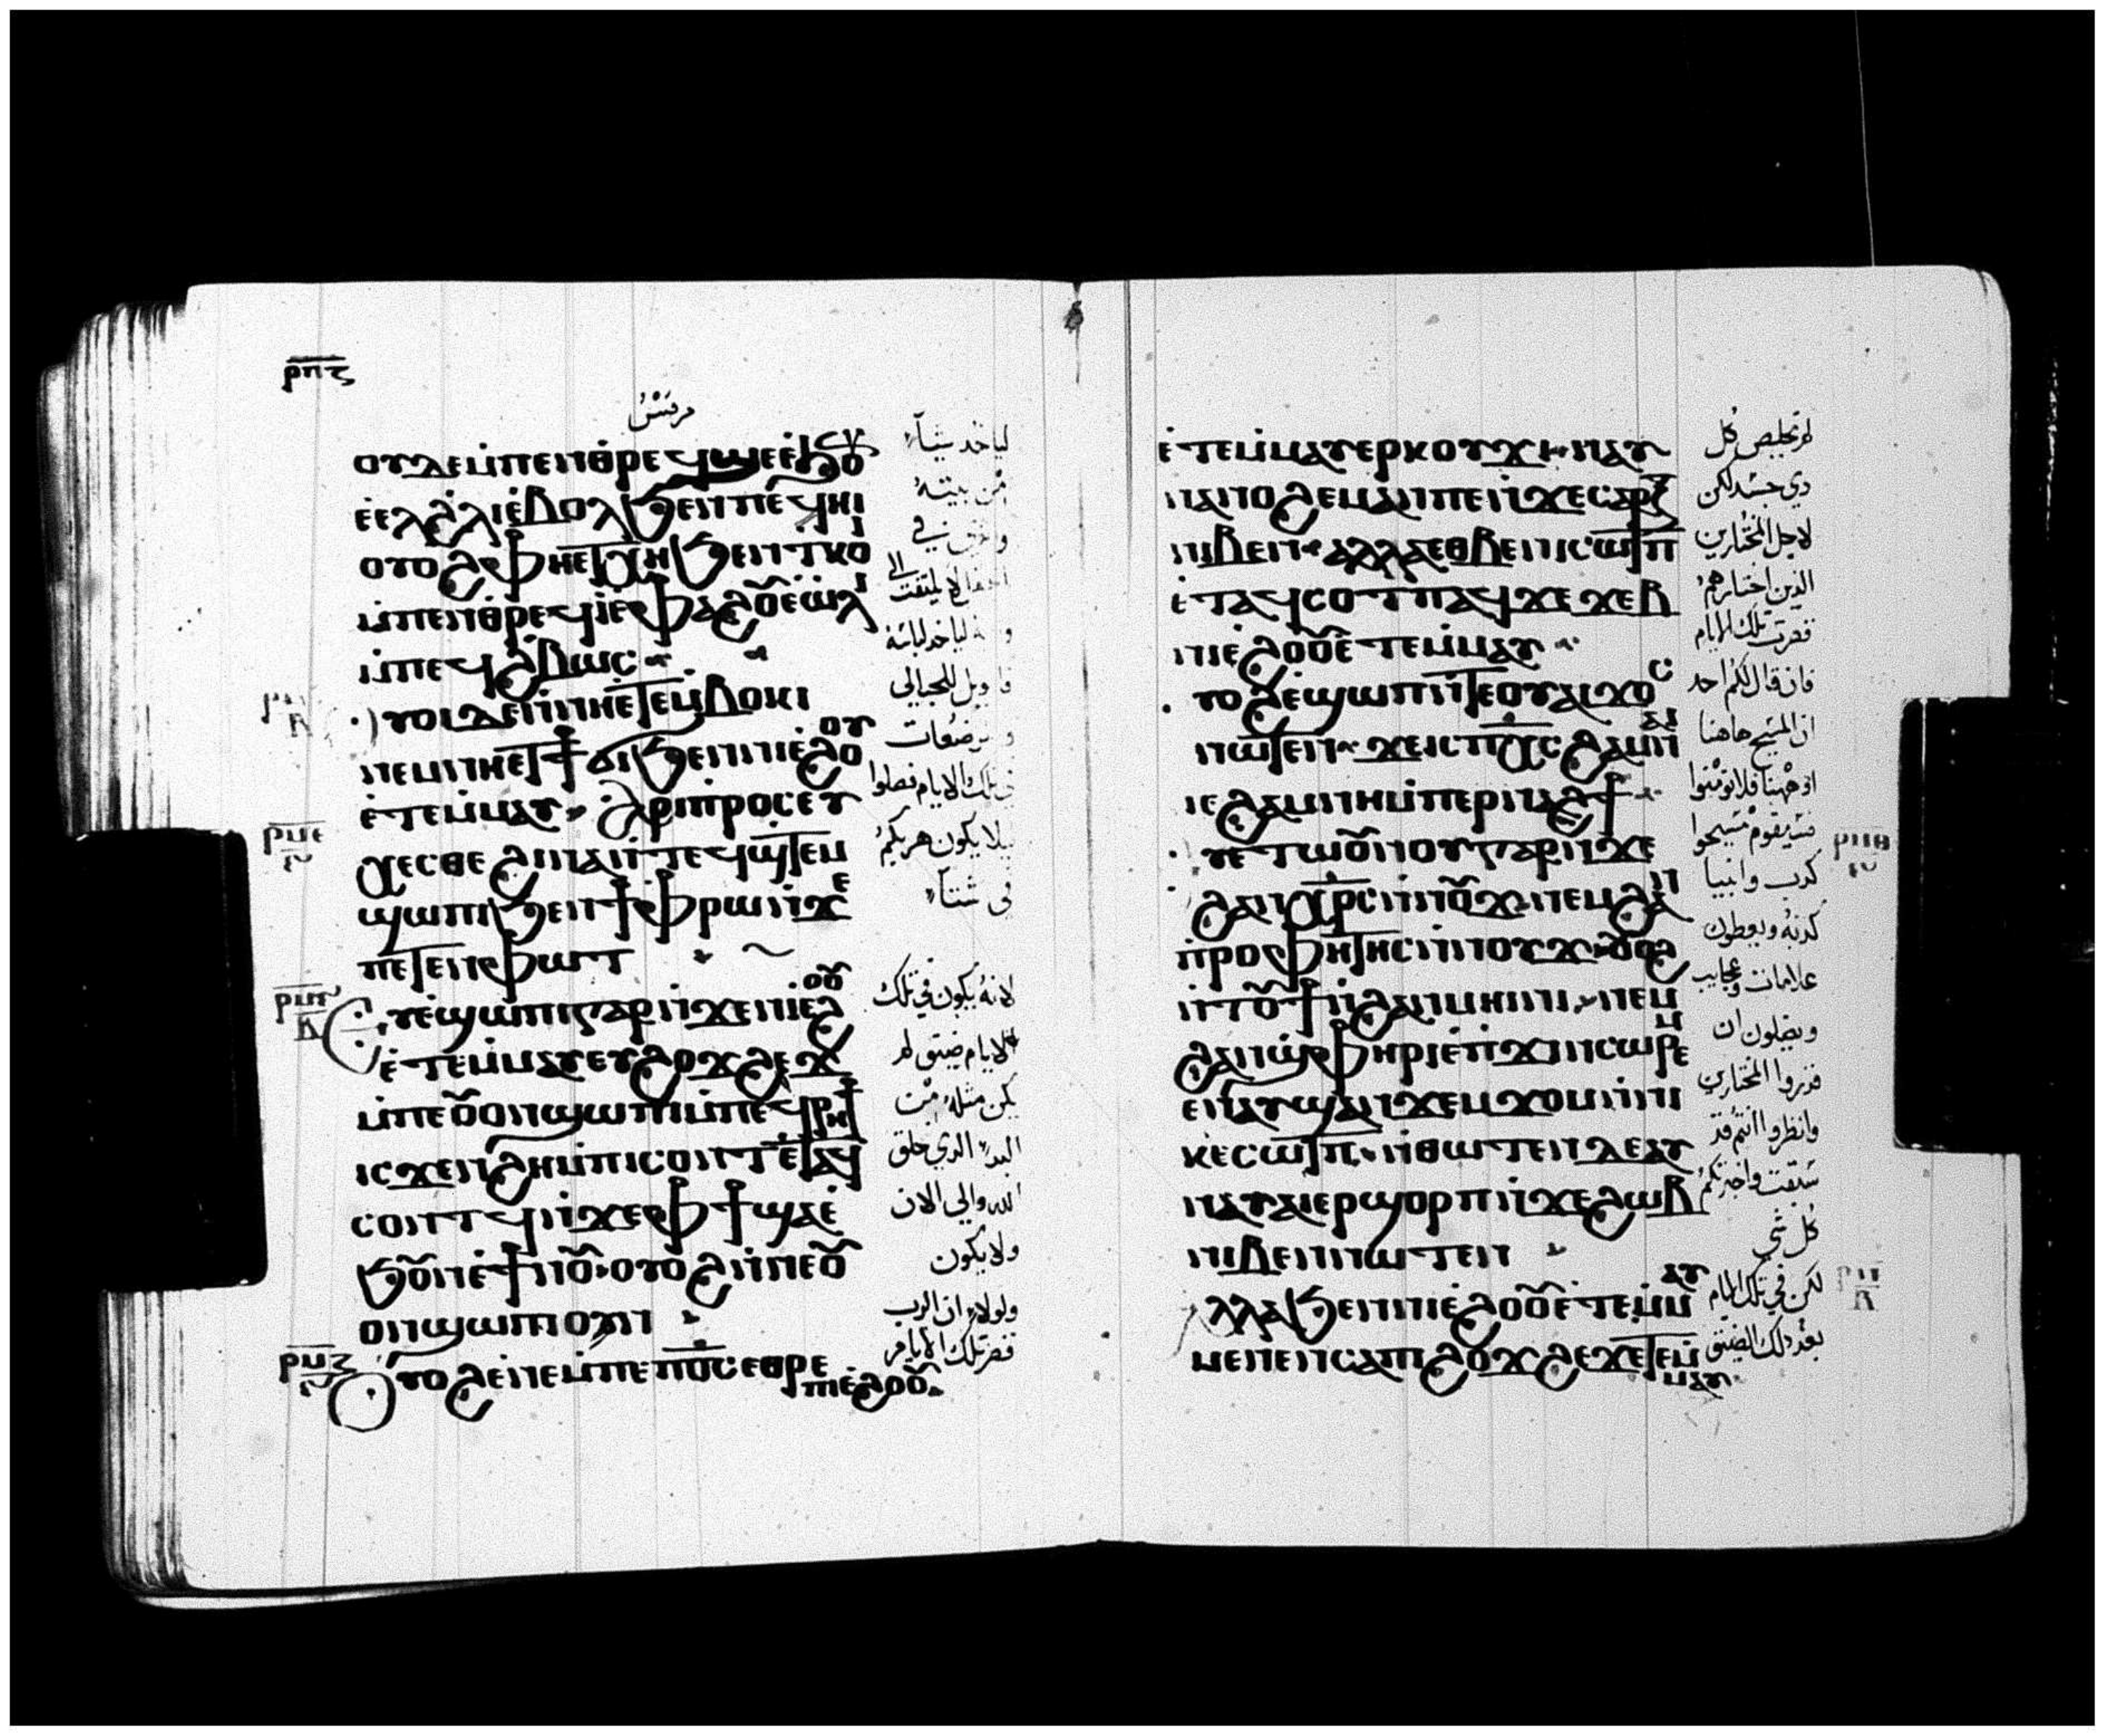 ⲣⲡⲋ
مرقس
ⲟⲩⲇⲉ ⲙⲡⲉⲛⲑⲣⲉϥϣⲉ ⲉϧⲟⲩ
ⲉⲉⲗϩⲗⲓ ⲉⲃⲟⲗ ϧⲉⲛ ⲡⲉϥⲏⲓ
ⲟⲩⲟϩ ⲫⲏⲉⲧⲭⲏ ϧⲉⲛ ⲧⲕⲟⲓ
ⲙⲡⲉⲛⲑⲣⲉϥ ⲫⲁϩⲟⲩ ⲉⲱⲗⲓ
ⲙⲡⲉϥϩⲃⲱⲥ
ⲟⲩⲟⲓ ⲇⲉ ⲛⲛⲏⲉⲧⲉⲙⲃⲟⲕⲓ
ⲛⲉⲙ ⲛⲏⲉⲧϯϭⲓ ϧⲉⲛ ⲛⲓⲉϩⲟⲟⲩ
ⲉⲧⲉⲙⲙⲁⲩ ⲁⲣⲓⲡⲣⲟⲥⲉⲩ
ⲭⲉⲥⲑⲉ ϩⲓⲛⲁ ⲛⲧⲉϥϣⲧⲉⲙ
ϣⲱⲡⲓ ϧⲉⲛ ϯⲫⲣⲱ ⲛϫⲉ
ⲡⲉⲧⲉⲛⲫⲱⲧ
ⲉⲩⲉϣⲱⲡⲓ ⲅⲁⲣ ⲛϫⲉ ⲛⲓⲉϩⲟⲟⲩ
ⲉⲧⲉⲙⲙⲁⲩ ⲉⲩϩⲟϫϩⲉϫ
ⲙⲡⲉⲟⲩⲟⲛ ϣⲱⲡⲓ ⲙⲡⲉϥⲣⲏϯ
ⲓⲥϫⲉⲛ ϩⲏ ⲙⲡⲓⲥⲱⲛⲧ ⲉⲧⲁϥ
ⲥⲟⲛⲧϥ ⲛϫⲉ ⲫϯ ϣⲁⲉ
ϧⲟⲩⲛ ⲉϯⲛⲟⲩ ⲟⲩⲟϩ ⲛⲛⲉⲟⲩ
ⲟⲛ ϣⲱⲡⲓ ⲟⲛ
ⲟⲩⲟϩ ⲉⲛⲉ ⲙⲡⲉ ⲡⲟⲥ ⲉⲑⲣⲉ
ⲛⲓⲉϩⲟⲟⲩ
لياخد شيآ
من بيته
لا يلتفت الى
لياخد لباسه
في تلك الايام فصلوا
ليلا يكون هربكم
في شتآ
لانه يكون في تلك
الايام ضيق لم
يكن مثله من
البدء الدي خلق
الله والي الان
ولا يكون
ولولا ان الرب
قصر تلك الايام
ⲉⲧⲉⲙⲙⲁⲩ ⲉⲣⲕⲟⲩϫⲓ ⲛⲁⲩ
ⲛⲁⲛⲟϩⲉⲙ ⲁⲛ ⲡⲉ ⲛϫⲉ ⲥⲁⲣⲝ
ⲛⲓⲃⲉⲛ ⲁⲗⲗⲁ ⲉⲑⲃⲉ ⲛⲓⲥⲱⲧⲡ
ⲉⲧⲁϥⲥⲟⲧⲡⲟⲩ ⲁϥϫⲉϫⲉⲃ
ⲛⲓⲉϩⲟⲟⲩ ⲉⲧⲉⲙⲙⲁⲩ
ⲟⲩⲟϩ ⲉϣⲱⲡ ⲛⲧⲉ ⲟⲩⲁⲓ ϫⲟⲥ
ⲛⲱⲧⲉⲛ ϫⲉ ⲓⲥ ⲡⲭⲥ ϩⲁⲙⲛⲁⲓ
ⲓⲉ ϩⲁⲙⲛⲏ ⲙⲡⲉⲣⲛⲁϩϯ
ⲉⲩⲉⲧⲱⲟⲩⲛⲟⲩ ⲅⲁⲣ ⲛϫⲉ
ϩⲁⲛⲭⲣⲥ ⲛⲛⲟⲩϫ ⲛⲉⲙ ϩⲁⲛ
ⲡⲣⲟⲫⲏⲧⲏⲥ ⲛⲛⲟⲩϫ ⲟⲩⲟϩ
ⲛⲧⲟⲩϯ ⲛϩⲁⲛⲙⲏⲓⲛⲓ ⲛⲉⲙ
ϩⲁⲛϣⲫⲏⲣⲓ ⲉⲡϫⲓⲛⲥⲱⲣⲉⲙ
ⲉⲛⲁⲩϣⲁⲛϫⲉⲙϫⲟⲙ ⲛⲛⲓ
ⲕⲉⲥⲱⲧⲡ ⲛⲑⲱⲧⲉⲛ ⲇⲉ ⲁⲩ
ⲛⲁⲩ ⲁⲓⲉⲣϣⲟⲣⲡ ⲛϫⲉ ϩⲱⲃ
ⲛⲓⲃⲉⲛ ⲛⲱⲧⲉⲛ
ⲁⲗⲗⲁ ϧⲉⲛ ⲛⲓⲉϩⲟⲟⲩ ⲉⲧⲉⲙⲙⲁⲩ
ⲙⲉⲛⲉⲛⲥⲁ ⲡⲓϩⲟϫϩⲉϫ ⲉⲧⲉⲙ
ⲙⲁⲩ
لم تخلص كل
دي جسد لكن
لاجل المختارين
الذين اختارهم
قصرت تلك الايام
فان قال لكم احد
ان المسيح هاهنا
او ههنا فلا تومنوا
فسيقوم مسيحوا
كدب وانبيا
كدبه ويعطون
علامات وعجايب
ويضلون ان
قدروا المختارين
وانظروا انتم قد
سبقت واخبرتكم
كل شي
لكن في تلك الايام
بعد دلك الضيق